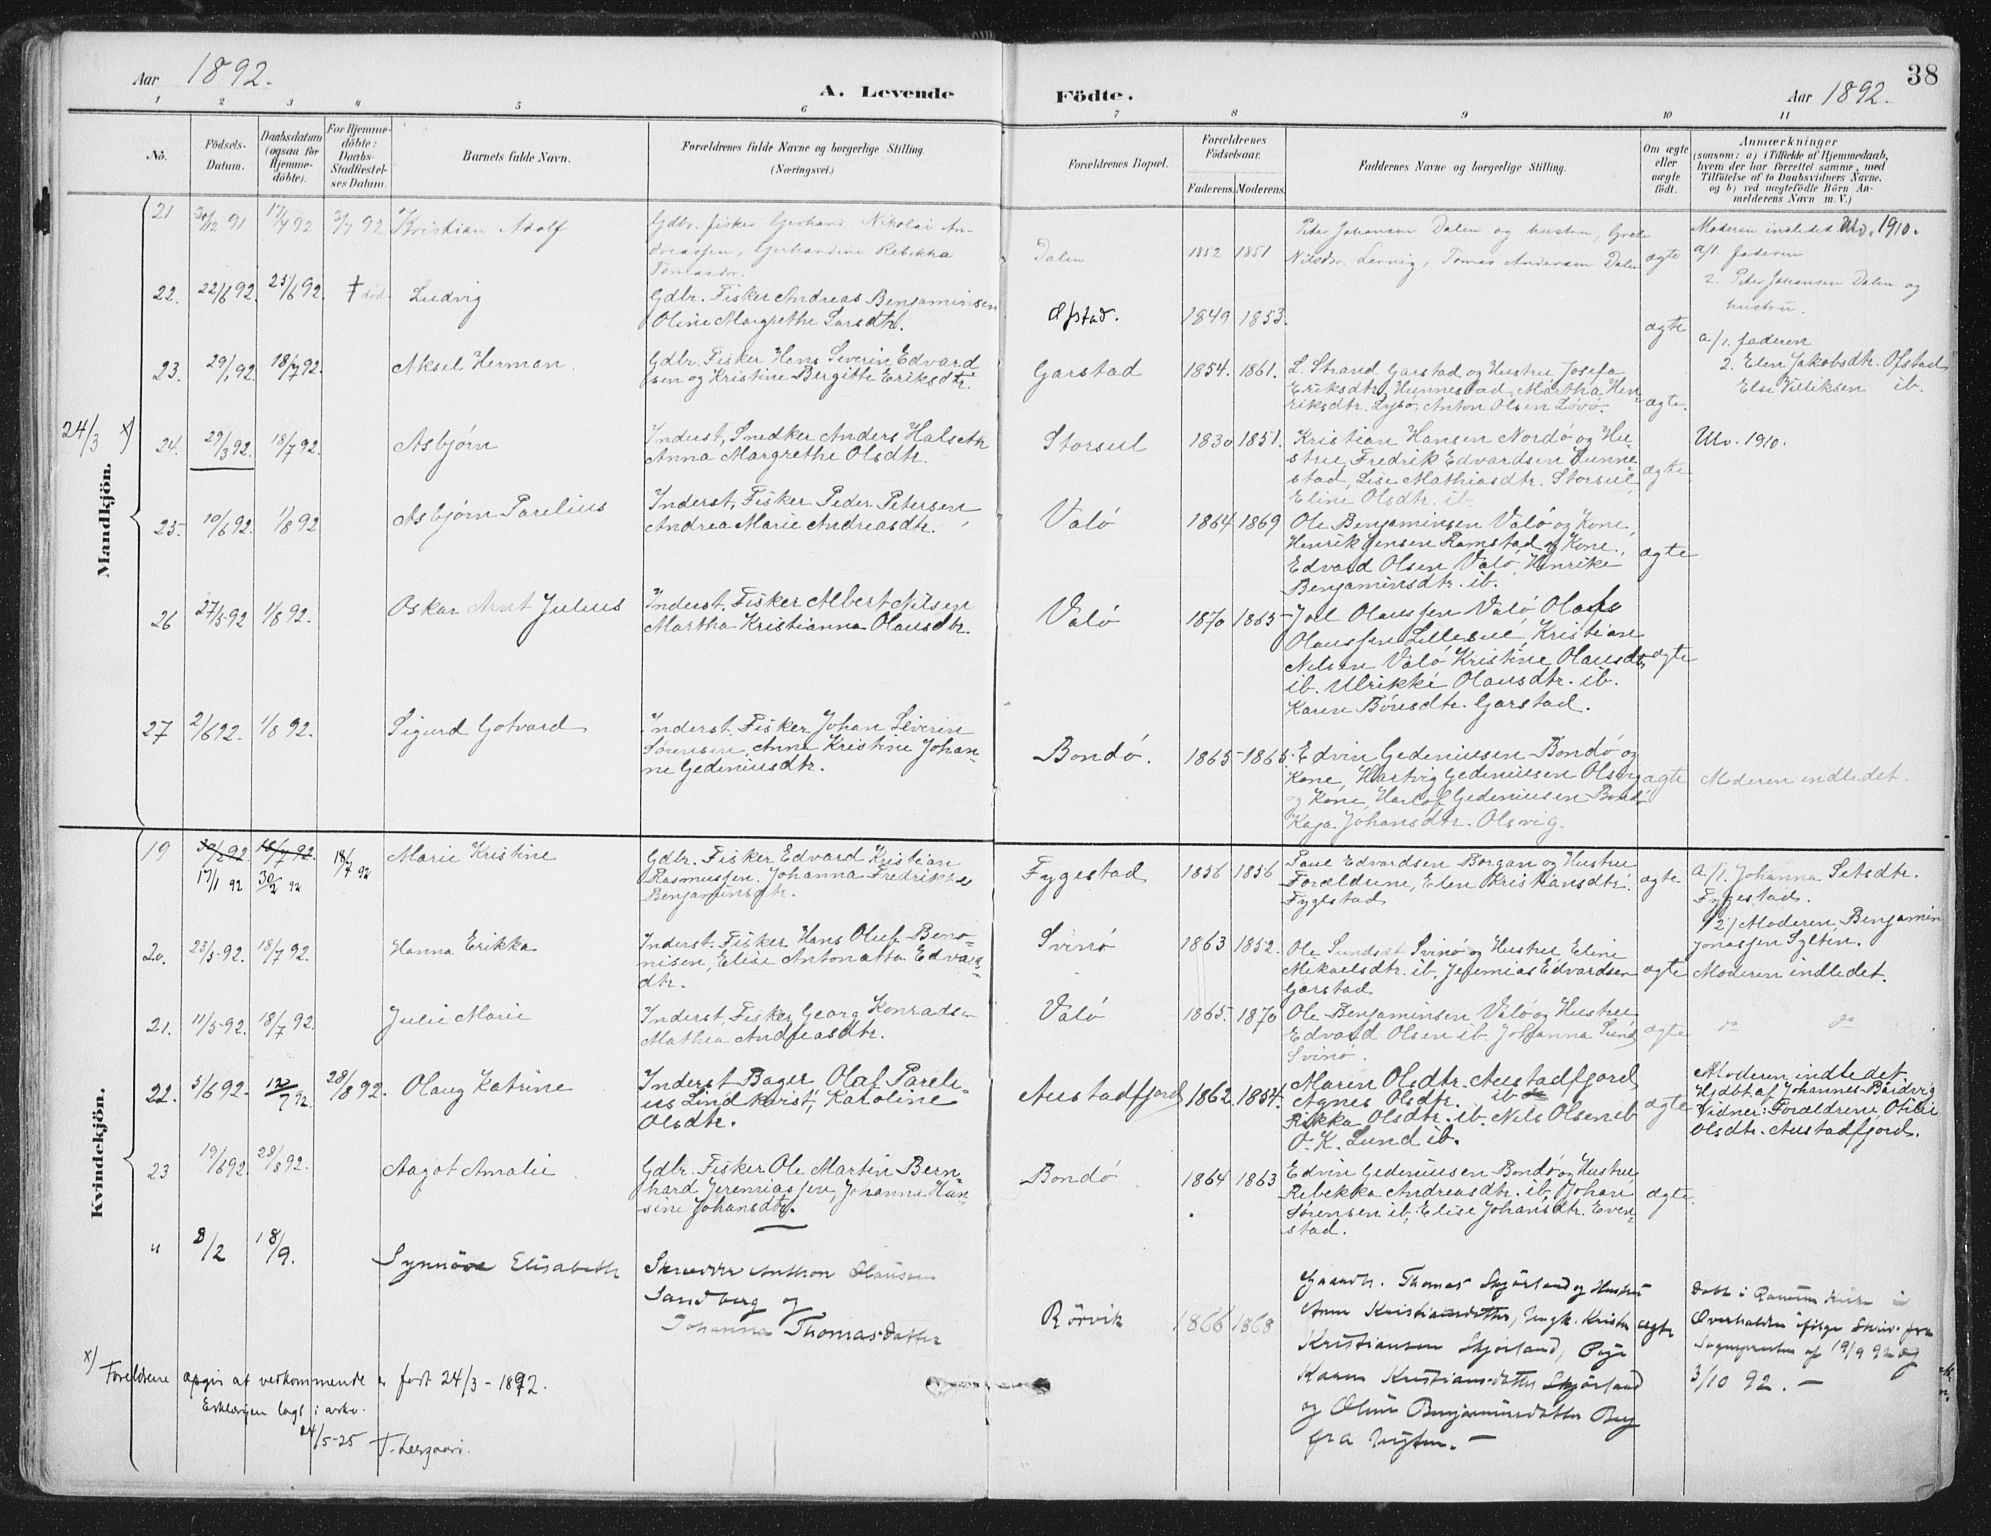 38
Aar 1892.
A. Levende Födte.
Aar 1892.
1 2 3 4 5 6 7 8 9 10 11
No.
Födsels-Datum.
Daabsdatum (ogsaa for Hjemme-döbte).
For Hjemme-döbte: Daabs-Stadfæstel-ses Datum.
Barnets fulde Navn.
Forældrenes fulde Navne og borgerlige Stilling.
(Næringsvei.)
Forældrenes Bopæl.
Forældrenes Födselsaar.
Faderens. Moderens.
Faddernes Navne og borgerlige Stilling.
Om ægte eller uægte födt.
Anmærkninger
(saasom: a) i Tilfælde af Hjemmedaab,
hvem der har forrettet samme, med
Tilföielse af to Daabsvidners Navne.
og b) ved uægtefödte Börn An-
melderens Navn m. V.)
Mandkjön.
21 30/12 91 17/4 92 3/7 92 Kristian Adolf
Gdbr. fisker Gerhard Nikolai An-
dreassen, Gerhardine Rebekka
Tomasdr.
Dalen 1852 1851
Peter Johansen Dalen og hustru, Grete
Nilsdr. Lervig, Tomas Andersen Dalen
ægte
Moderen indledet Utv. 1910.
a/1. faderen
2. Peter Johansen Dalen og
hustru.
22. 22/6 92. 25/6 92. † død Ludvig
Gdbr. Fisker Andreas Benjaminsen
Oline Margrethe Larsdtr.
Ofstad. 1849 1853.
ægte
a/1. faderen
2. Elen Jakobsdtr. Ofstad
Else Villiksen ib.
23. 29/1 92. 18/7 92. Aksel Herman.
Gdbr. Fisker Hans Severin Edvard
sen og Kristine Bergitte Eriksdtr.
Garstad 1854. 1861.
L. Strand Garstad og Hustru Josefa
Eriksdtr. Hunnestad, Martha Hen-
riksdtr. Lysø, Anton Olsen Lövö.
ægte.
24/3 x)
24. 29/3 92. 18/7 92. Asbjørn
Inderst, Snedker Anders Halseth
Anna Margrethe Olsdtr.
Storsul 1830 1851.
Kristian Hansen Nordö og Hu-
stru, Fredrik Edvardsen Hunne-
stad, Lise Mathiasdtr. Storsul,
Eline Olsdtr. ib.
ægte
Utv. 1910.
25- 10/6 92. 1/8 92 Asbjørn Parelius
Inderst, Fisker Peder Petersen,
Andrea Marie Andreasdtr.
Valö 1864 1869
Ole Benjaminsen Valö og Kone,
Henrik Jensen Ramstad og Kone,
Edvard Olsen Valö, Henrike
Benjaminsdtr. ib.
ægte
26 27/5-92 1/8 92. Oskar Arnt Julius
Inderst, Fisker Albert Nilsen
Martha Kristianna Olausdtr.
Valö 1870 1865-
Joel Olaussen Valö, Olaf
Olaussen Lillesul, Kristian
Nilsen Valö Kristine Olausdtr.
ib. Ulrikke Olausdtr. ib.
Karen Börresdtr. Garstad.
ægte
27 2/6 92. 1/8 92. Sigurd Gotvard
Inderst. Fisker Johan Severin
Sørensen, Anne Kristine Johan-
ne Gedeniusdtr.
Bondö. 1865- 1865.
Edvin Gedeniusen Bondö og
Kone, Hartvig Gedeniusen Olsvig
og Kone, Harlof Gedeniusen Bondö
Kaja Johansdtr. Olsvig.
ægte
Moderen indledet.
Kvindekjön.
19 30/2 92. 18/7 92. 18/7 92 Marie Kristine
17/1 92 30/2 92
Gdbr. Fisker Edvard Kristian
Rasmussen. Johanna Fredrikke
Benjaminsdtr.
Fygestad 1856 1856
Paul Edvardsen Borgan og Hustru
Forældrene, Elen Kristiansdtr.
Fygestad
ægte
a/1. Johanna Setsdtr.
Fygestad.
2/ Moderen, Benjamin
Jonassen Sylten.
20. 23/5-92. 18/7 92. Hanna Erikka
Inderst. Fisker Hans Oluf Beno-
nisen, Elise Antonatta Edvards-
dtr.
Svinö 1863 1852.
Ole Sundset Svinö og Hustru Eline
Mikaelsdtr. ib, Jeremias Edvardsen
Garstad
ægte
Moderen indledet.
21. 11/5-92. 18/7 92. Julie Marie
Inderst, Fisker Georg Konradsen
Mathea Andreasdtr.
Valö 1865. 1870
Ole Benjaminsen Valö og Hustru
Edvard Olsen ib. Johanna Sund
Svinö.
ægte
do do
22. 5/6 92. 12/7 92. 28/8 92. Olaug Katrine
Inderst Bager Olaf Pareli-
us Lindkvist, Karoline
Olsdtr.
Austadfjord 1862 1854.
Maren Olsdtr. Austadfjord
Agnes Olsdtr. ib
Rikka Olsdtr. ib. Nils Olsen ib
O. K. Lund ib.
ægte
Moderen indledet.
Hjdbt. af Johannes Bardvig
Vidner: Forældrene, Otilie
Olsdtr. Austadfjord.
23 19/6 92. 28/8 92. Aagot Amalie
Gdbr. Fisker Ole Martin Bern-
hard Jeremiassen, Johanne Han-
sine Johansdtr.
Bondö 1864 1863
Edvin Gedeniusen Bondö og Hustru,
Rebekka Andreasdtr. ib, Johan
Sørensen ib, Elise Johansdtr. Even-
stad.
ægte.
" 8/2 18/9. Synnöve Elisabeth
Skrædder Anthon Clausen
Sandberg og
Johanna Thomasdatter
Rörvik 1866 1868
Gaardbr. Thomas Skjørland og Hustru
Anne Kristiansdatter, Ungk.
Kristiansen Skjørland, Pige
Karen Kristiansdatter Skjørland
og Oline Benjaminsdatter
fra
ægte
Döbt i Ranum Kirke i
Overhalden ifølge Skriv. fra
Sognepræsten af 19/9 92 og
3/10 92. —
x) Foreldrene opgir at vedkommende er født 24/3 - 1892.
Erklæringen lagt i arkiv.
24/5-25